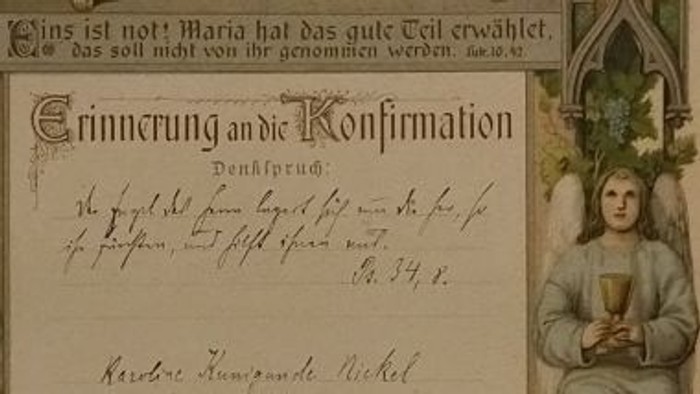 Eins ist not! Maria hat das gute Teil erwählet,
das soll nicht von ihr genommen werden. Luk. 10, 42.
Erinnerung an die Konfirmation
Denkspruch:
Der Engel des Herrn lagert sich um die her, so
ihn fürchten, und hilft ihnen aus.
Ps. 34, 8.
Karoline Kunigunde Nickel